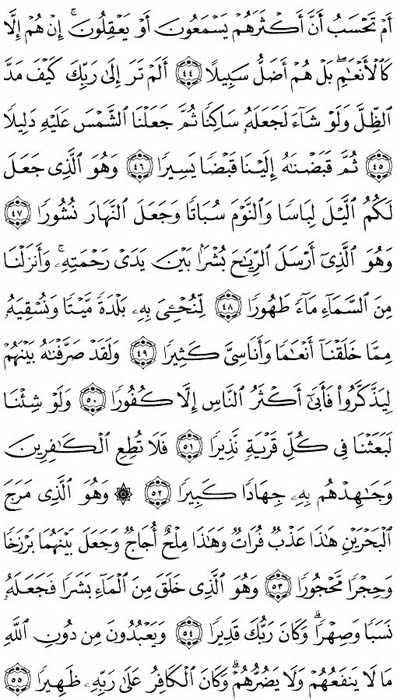 أَمْ تَحْسَبُ أَنَّ أَكْثَرَهُمْ يَسْمَعُونَ أَوْ يَعْقِلُونَ ۚ إِنْ هُمْ إِلَّا
كَالْأَنْعَٰمِ ۖ بَلْ هُمْ أَضَلُّ سَبِيلًا ﴿٤٤﴾ أَلَمْ تَرَ إِلَىٰ رَبِّكَ كَيْفَ مَدَّ
الظِّلَّ وَلَوْ شَاءَ لَجَعَلَهُۥ سَاكِنًا ثُمَّ جَعَلْنَا الشَّمْسَ عَلَيْهِ دَلِيلًا
﴿٤٥﴾ ثُمَّ قَبَضْنَٰهُ إِلَيْنَا قَبْضًا يَسِيرًا ﴿٤٦﴾ وَهُوَ الَّذِى جَعَلَ
لَكُمُ الَّيْلَ لِبَاسًا وَالنَّوْمَ سُبَاتًا وَجَعَلَ النَّهَارَ نُشُورًا ﴿٤٧﴾
وَهُوَ الَّذِىٓ أَرْسَلَ الرِّيَٰحَ بُشْرًۢا بَيْنَ يَدَىْ رَحْمَتِهِۦ ۚ وَأَنزَلْنَا
مِنَ السَّمَاءِ مَاءً طَهُورًا ﴿٤٨﴾ لِّنُحْـِۧىَ بِهِۦ بَلْدَةً مَّيْتًا وَنُسْقِيَهُۥ
مِمَّا خَلَقْنَا أَنْعَٰمًا وَأَنَاسِىَّ كَثِيرًا ﴿٤٩﴾ وَلَقَدْ صَرَّفْنَٰهُ بَيْنَهُمْ
لِيَذَّكَّرُوا۟ فَأَبَىٰٓ أَكْثَرُ النَّاسِ إِلَّا كُفُورًا ﴿٥٠﴾ وَلَوْ شِئْنَا
لَبَعَثْنَا فِى كُلِّ قَرْيَةٍ نَّذِيرًا ﴿٥١﴾ فَلَا تُطِعِ الْكَٰفِرِينَ
وَجَٰهِدْهُم بِهِۦ جِهَادًا كَبِيرًا ﴿٥٢﴾ ۞ وَهُوَ الَّذِى مَرَجَ
الْبَحْرَيْنِ هَٰذَا عَذْبٌ فُرَاتٌ وَهَٰذَا مِلْحٌ أُجَاجٌ وَجَعَلَ بَيْنَهُمَا بَرْزَخًا
وَحِجْرًا مَّحْجُورًا ﴿٥٣﴾ وَهُوَ الَّذِى خَلَقَ مِنَ الْمَاءِ بَشَرًا فَجَعَلَهُۥ
نَسَبًا وَصِهْرًا ۗ وَكَانَ رَبُّكَ قَدِيرًا ﴿٥٤﴾ وَيَعْبُدُونَ مِن دُونِ اللَّهِ
مَا لَا يَنفَعُهُمْ وَلَا يَضُرُّهُمْ ۗ وَكَانَ الْكَافِرُ عَلَىٰ رَبِّهِۦ ظَهِيرًا ﴿٥٥﴾